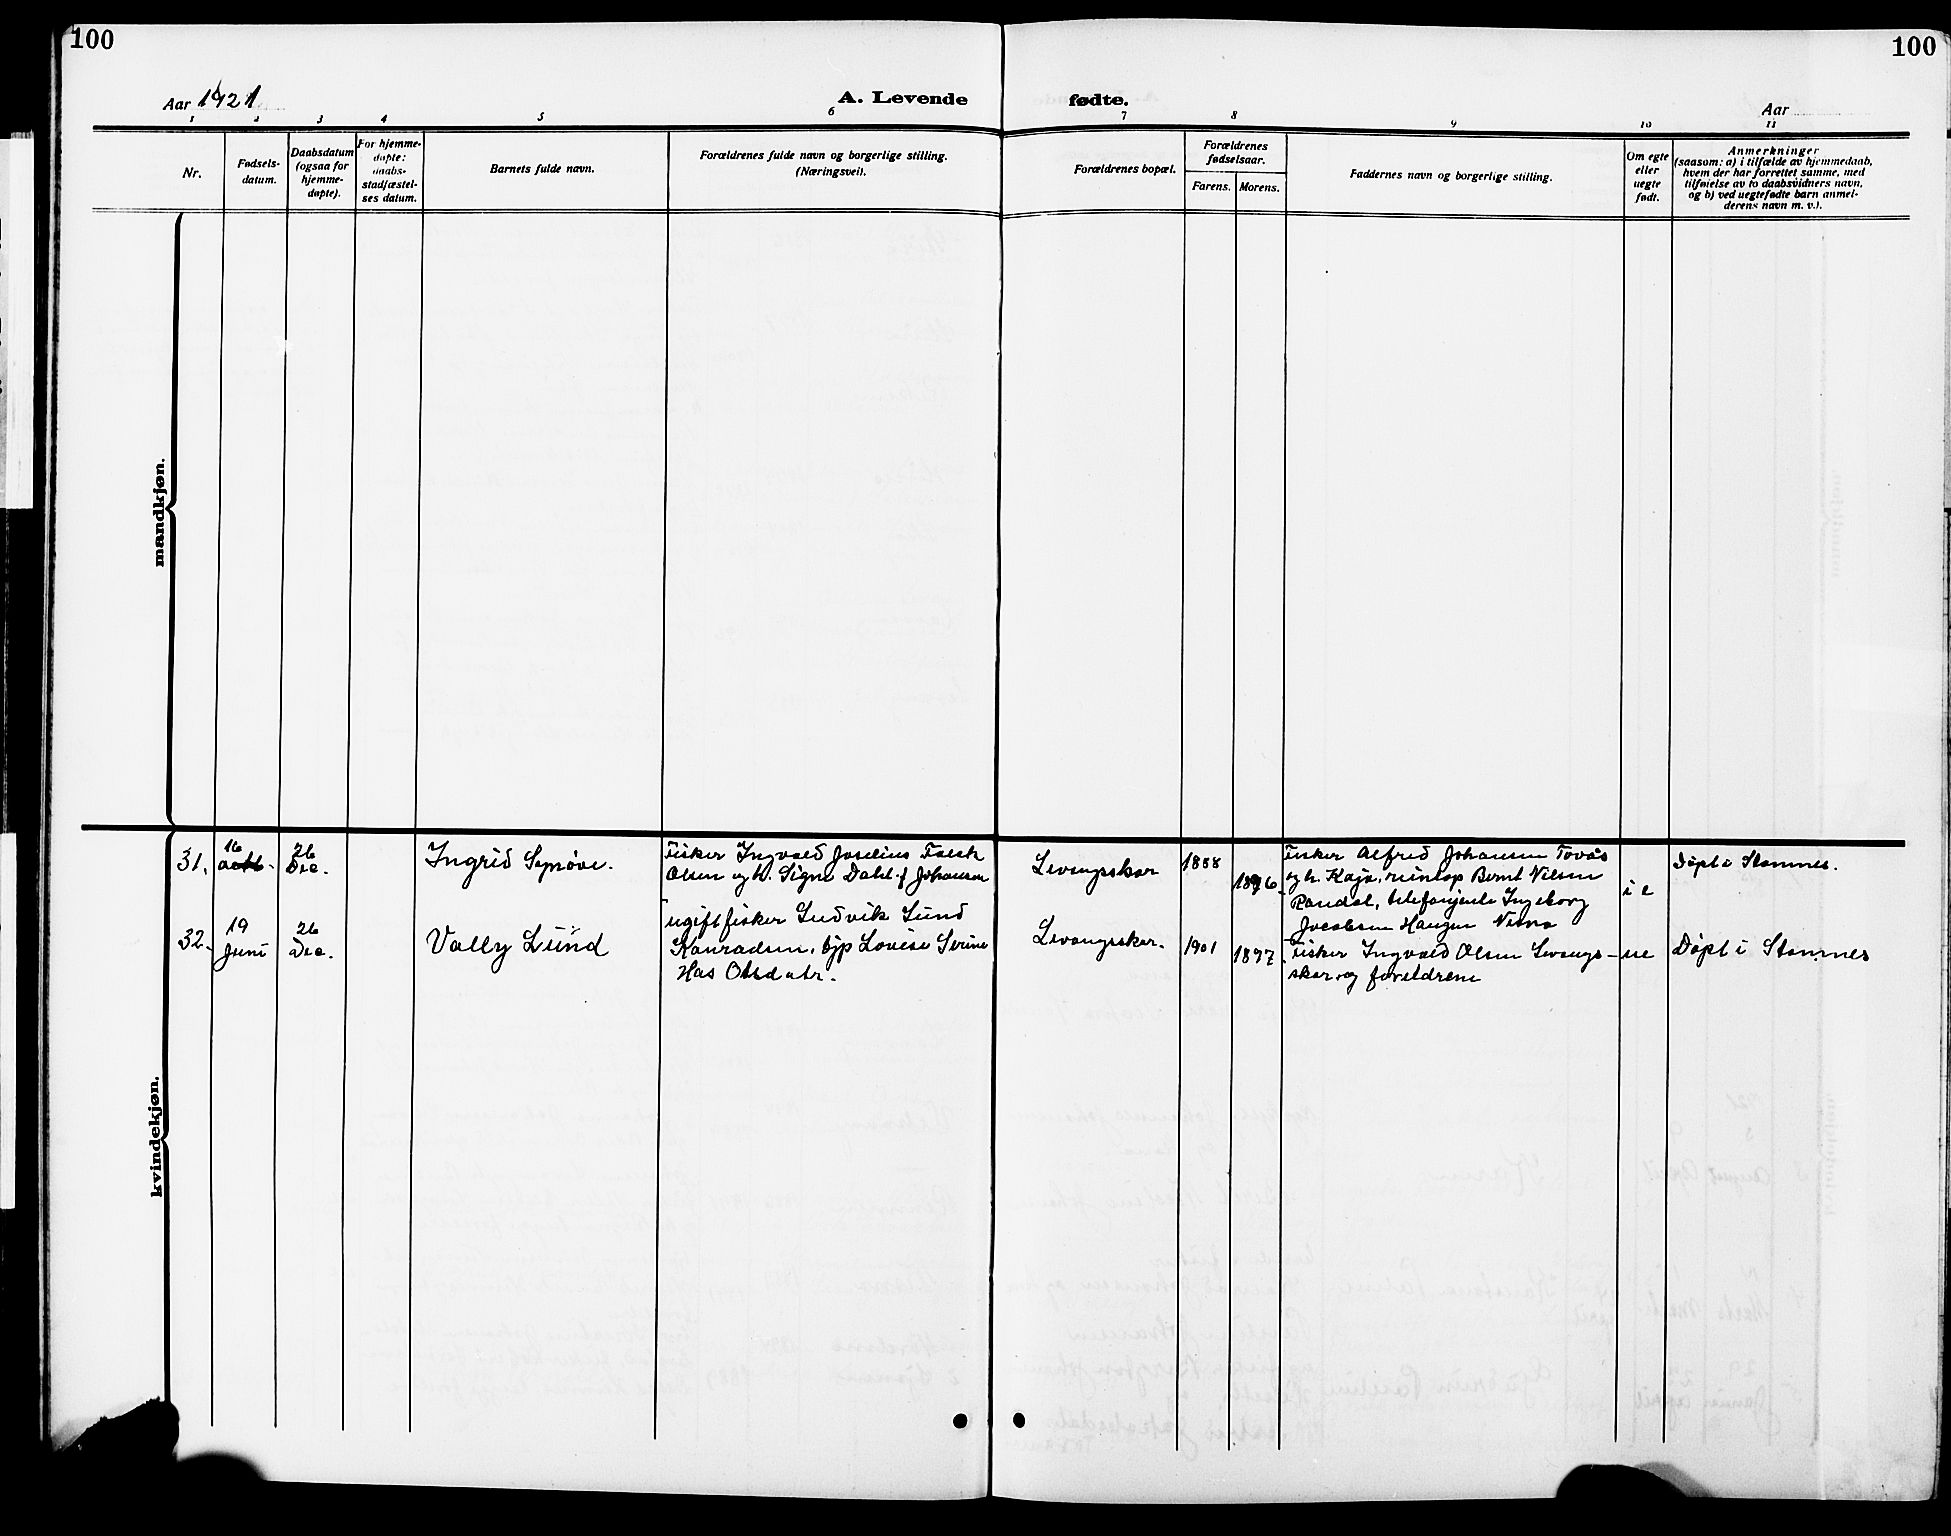 100
100
Aar 1921
A. Levende fødte.
Aar
1 2 3 4 5 6 7 8 9 10 11
Nr.
Fødsels-
datum.
Daabsdatum
(ogsaa for
hjemme-
døpte).
For hjemme-
døpte:
daabs-
stadfæstel-
ses datum.
Barnets fulde navn.
Forældrenes fulde navn og borgerlige stilling.
(Næringsvei).
Forældrenes bopæl.
Forældrenes
fødselsaar.
Farens. Morens.
Faddernes navn og borgerlige stilling.
Om egte
eller
uegte
født.
Anmerkninger
(saasom: a) i tilfælde av hjemmedaab,
hvem der har forrettet samme, med
tilføielse av to daabsvidners navn,
og b) ved uegtefødte barn anmel-
derens navn m. v.).
mandkjøn.
kvindekjøn.
31.
16
octb.
26
Dec.
Ingrid Synøve.
Fisker Ingvald Joselius Falck
Olsen og h. Signe Dahl f Johansen
Levangsskar
1888
1896
Fisker Alfred Johansen Tovås
og h. Kaja, Bernt Nilsen
Randal, telefonjente Ingeborg
Jacobsen Haugen Nesna
i e
Døpt i Stamnes.
32.
19
Juni
26
Dec.
Vally Lund
ugift fisker Ludvik Lund
Konradsen, Lovise Serine
Has Otsdatr.
Levangsskar.
1901
1897
Fisker Ingvald Olsen Levangs-
skar og foreldrene
ue
Døpt i Stamnes